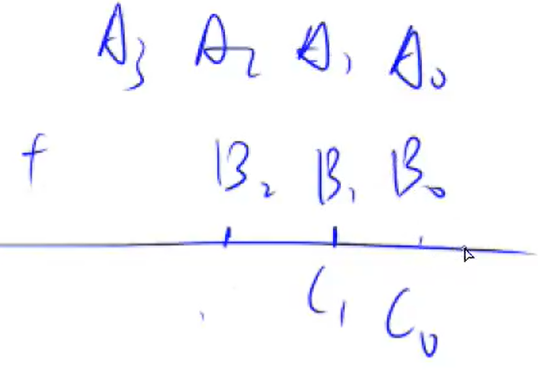 A₃ A₂ A₁ A₀
+ B₂ B₁ B₀
C₁ C₀